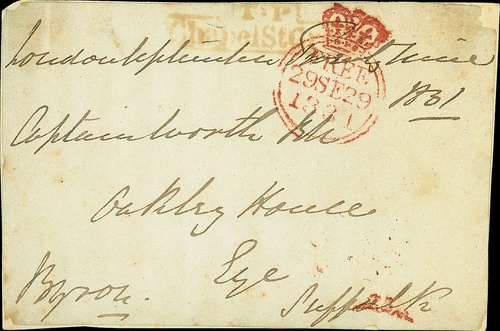 T.P
Chapel St
London September Twenty Nine
1831
FREE
29SE29
1831
Captain Worth RN
Oakley House
Eye
Byron.
Suffolk